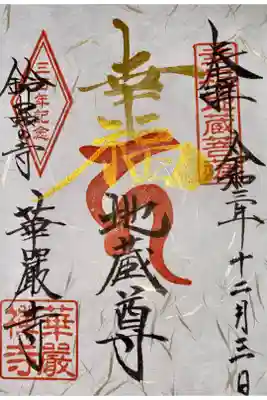 奉拝
令和三年十二月三日
幸福
地蔵尊
三百年記念
鈴虫の寺
華嚴寺
華嚴禅寺